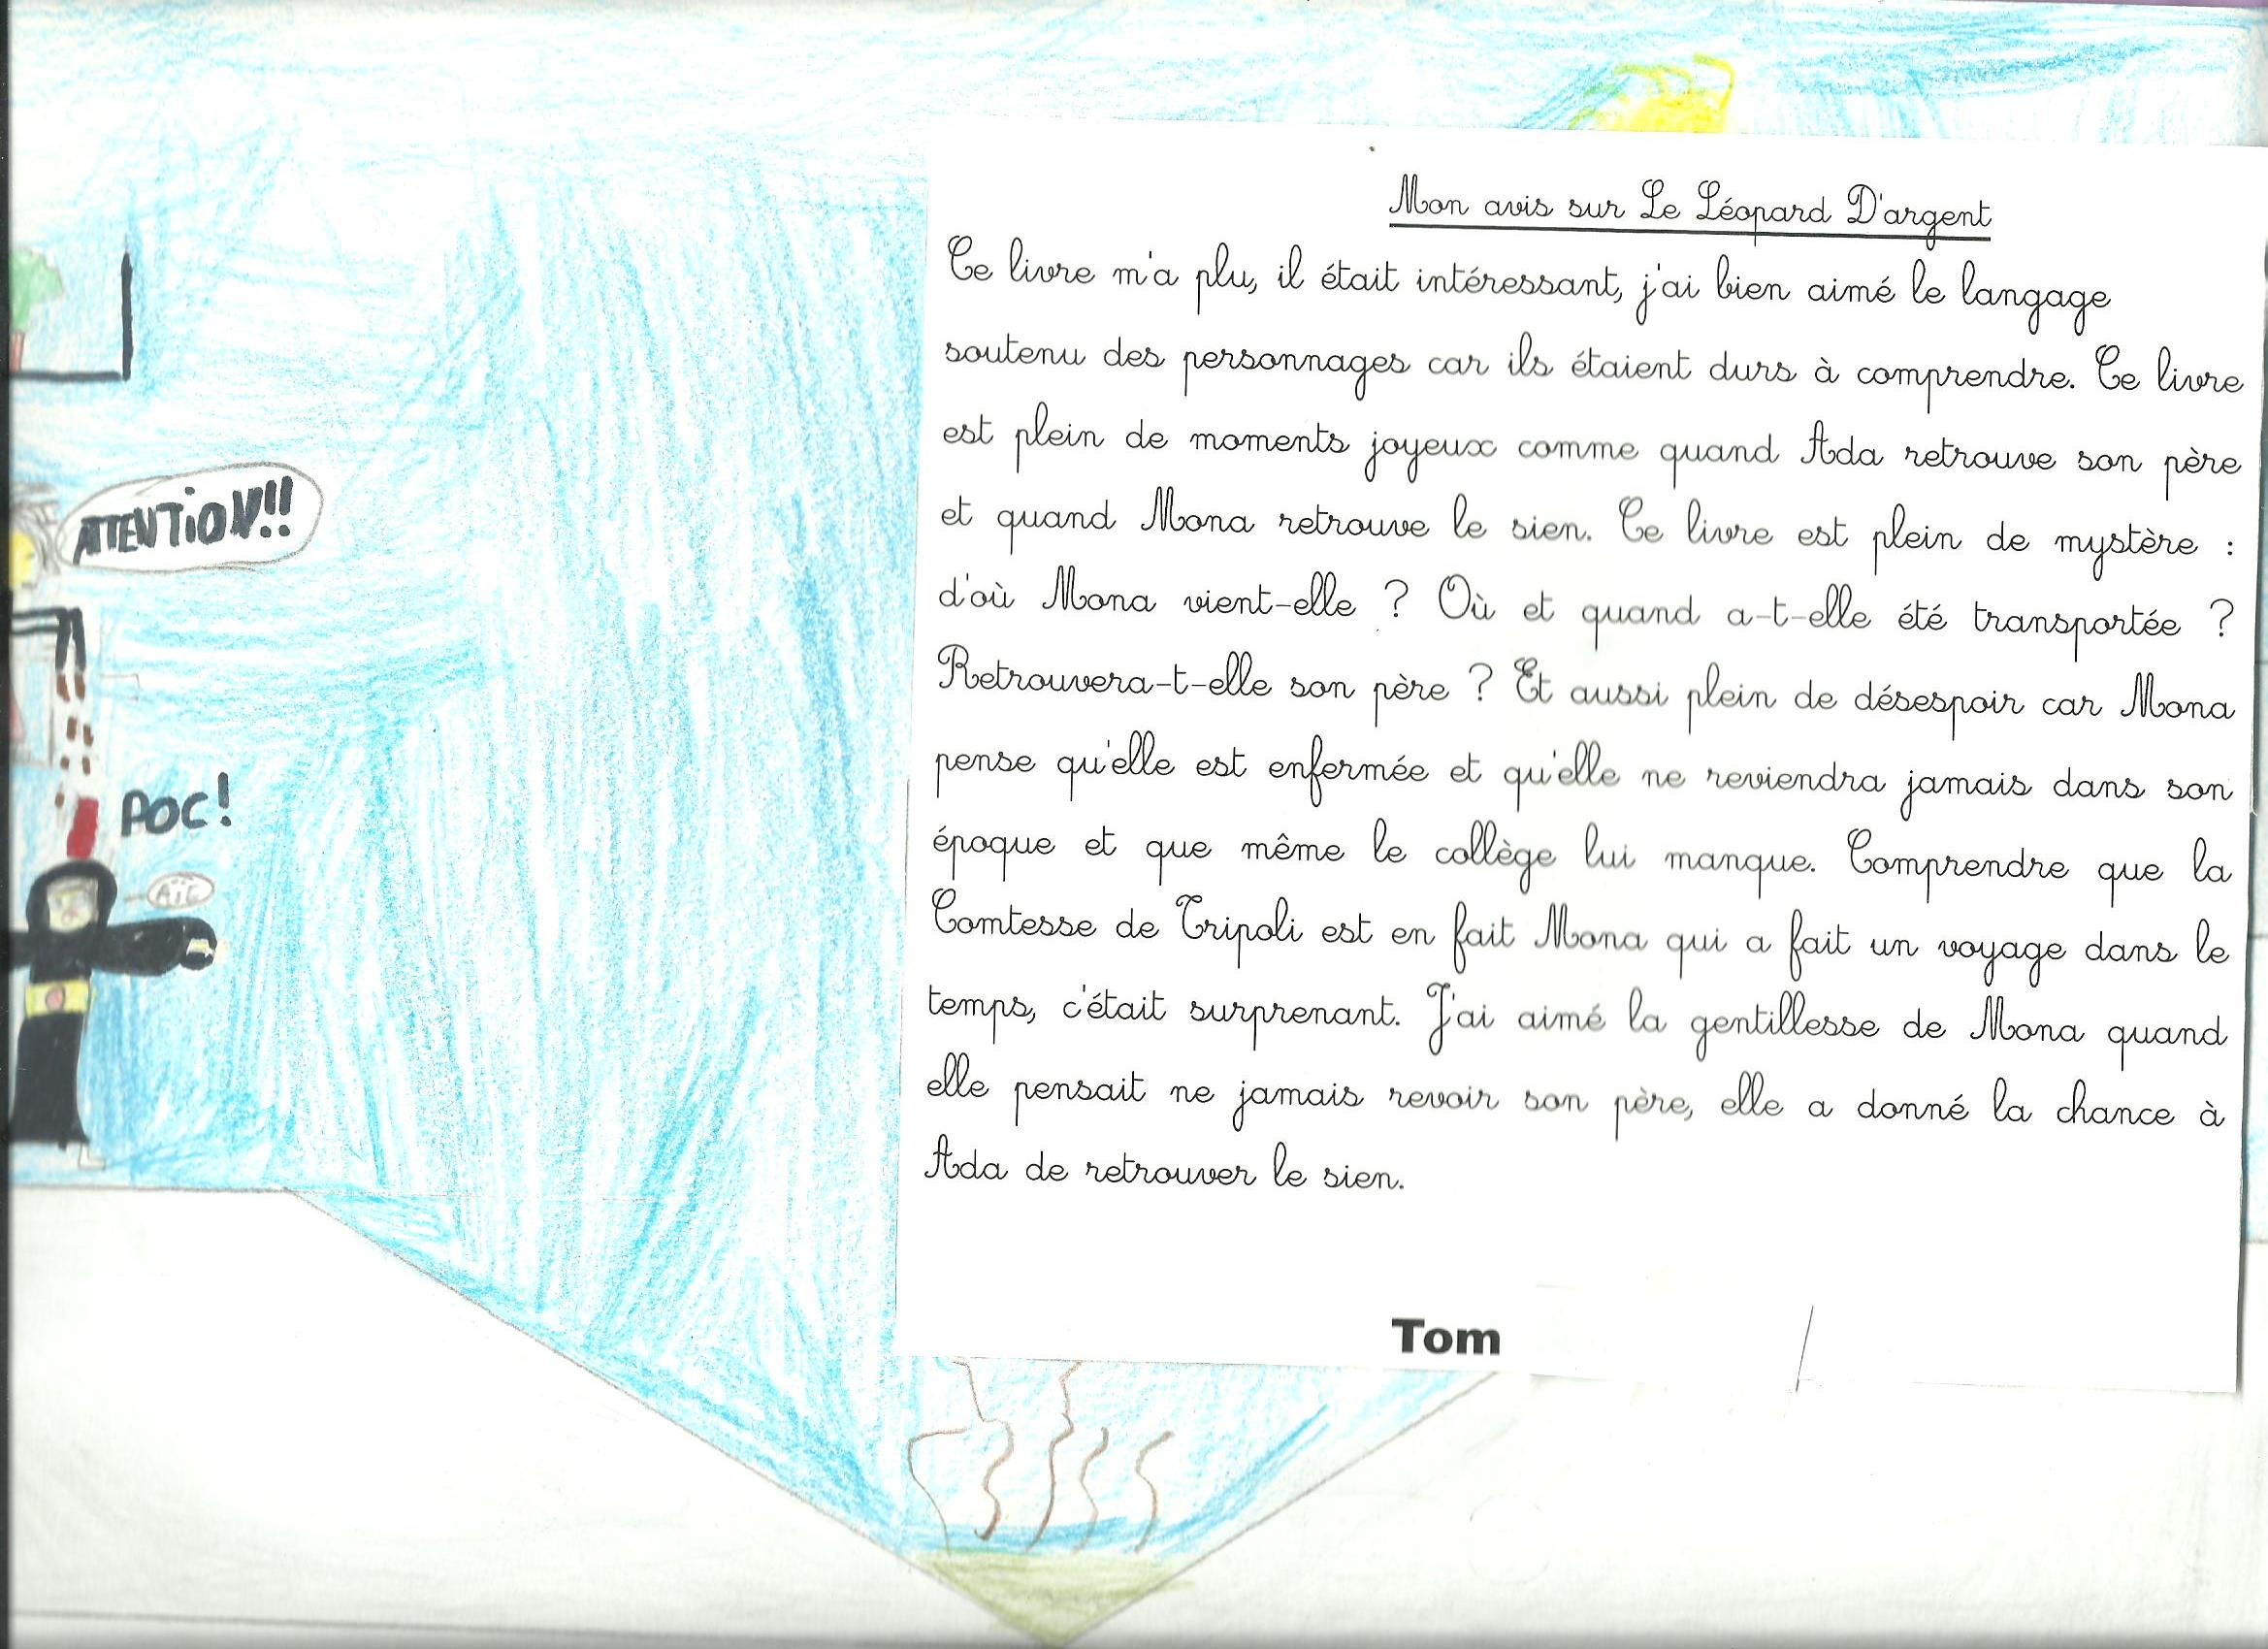 Mon avis sur Le Léopard D'argent
Ce livre m'a plu, il était intéressant, j'ai bien aimé le langage
soutenu des personnages car ils étaient durs à comprendre. Ce livre
est plein de moments joyeux comme quand Ada retrouve son père
et quand Mona retrouve le sien. Ce livre est plein de mystère :
d'où Mona vient-elle ? Où et quand a-t-elle été transportée ?
Retrouvera-t-elle son père ? Et aussi plein de désespoir car Mona
pense qu'elle est enfermée et qu'elle ne reviendra jamais dans son
époque et que même le collège lui manque. Comprendre que la
Comtesse de Tripoli est en fait Mona qui a fait un voyage dans le
temps, c'était surprenant. J'ai aimé la gentillesse de Mona quand
elle pensait ne jamais revoir son père, elle a donné la chance à
Ada de retrouver le sien.
Tom
ATTENTiON!!
POC!
AïE